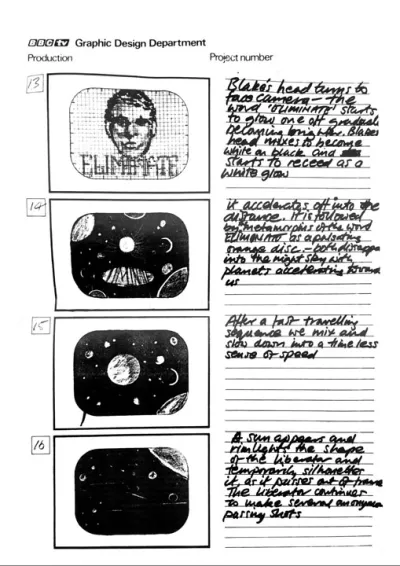 BBC tv Graphic Design Department
Production
Project number
13
ELIMINATE
Blake's head turns to
face camera – the
word 'ELIMINATE' starts
to glow one off gradually
becoming brighter. Blakes
head mixes to become
white on black and
starts to receed as a
white glow
14
it accelerates off into the
distance. It is followed
by metamorphis of the word
ELIMINATE as a pulsating
orange disc – both disappear
into the night sky with
planets accelerating toward
us
15
After a fast travelling
sequence we mix and
slow down into a timeless
sense of speed
16
A sun appears and
rimlights the shape
of the Liberator and
temporarily silhouettes
it, as it passes out of frame
The Liberator continues
to make several anonymous
passing shots